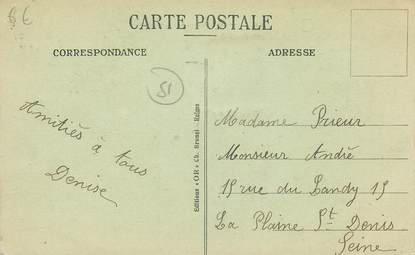 6€
CARTE POSTALE
CORRESPONDANCE
ADRESSE
51
Amitiés à tous
Denise
Editions «OR» Ch. Brunel - Matha
Madame Prieur
Monsieur Andrè
15 rue du Landy 15
La Plaine St Denis
Seine